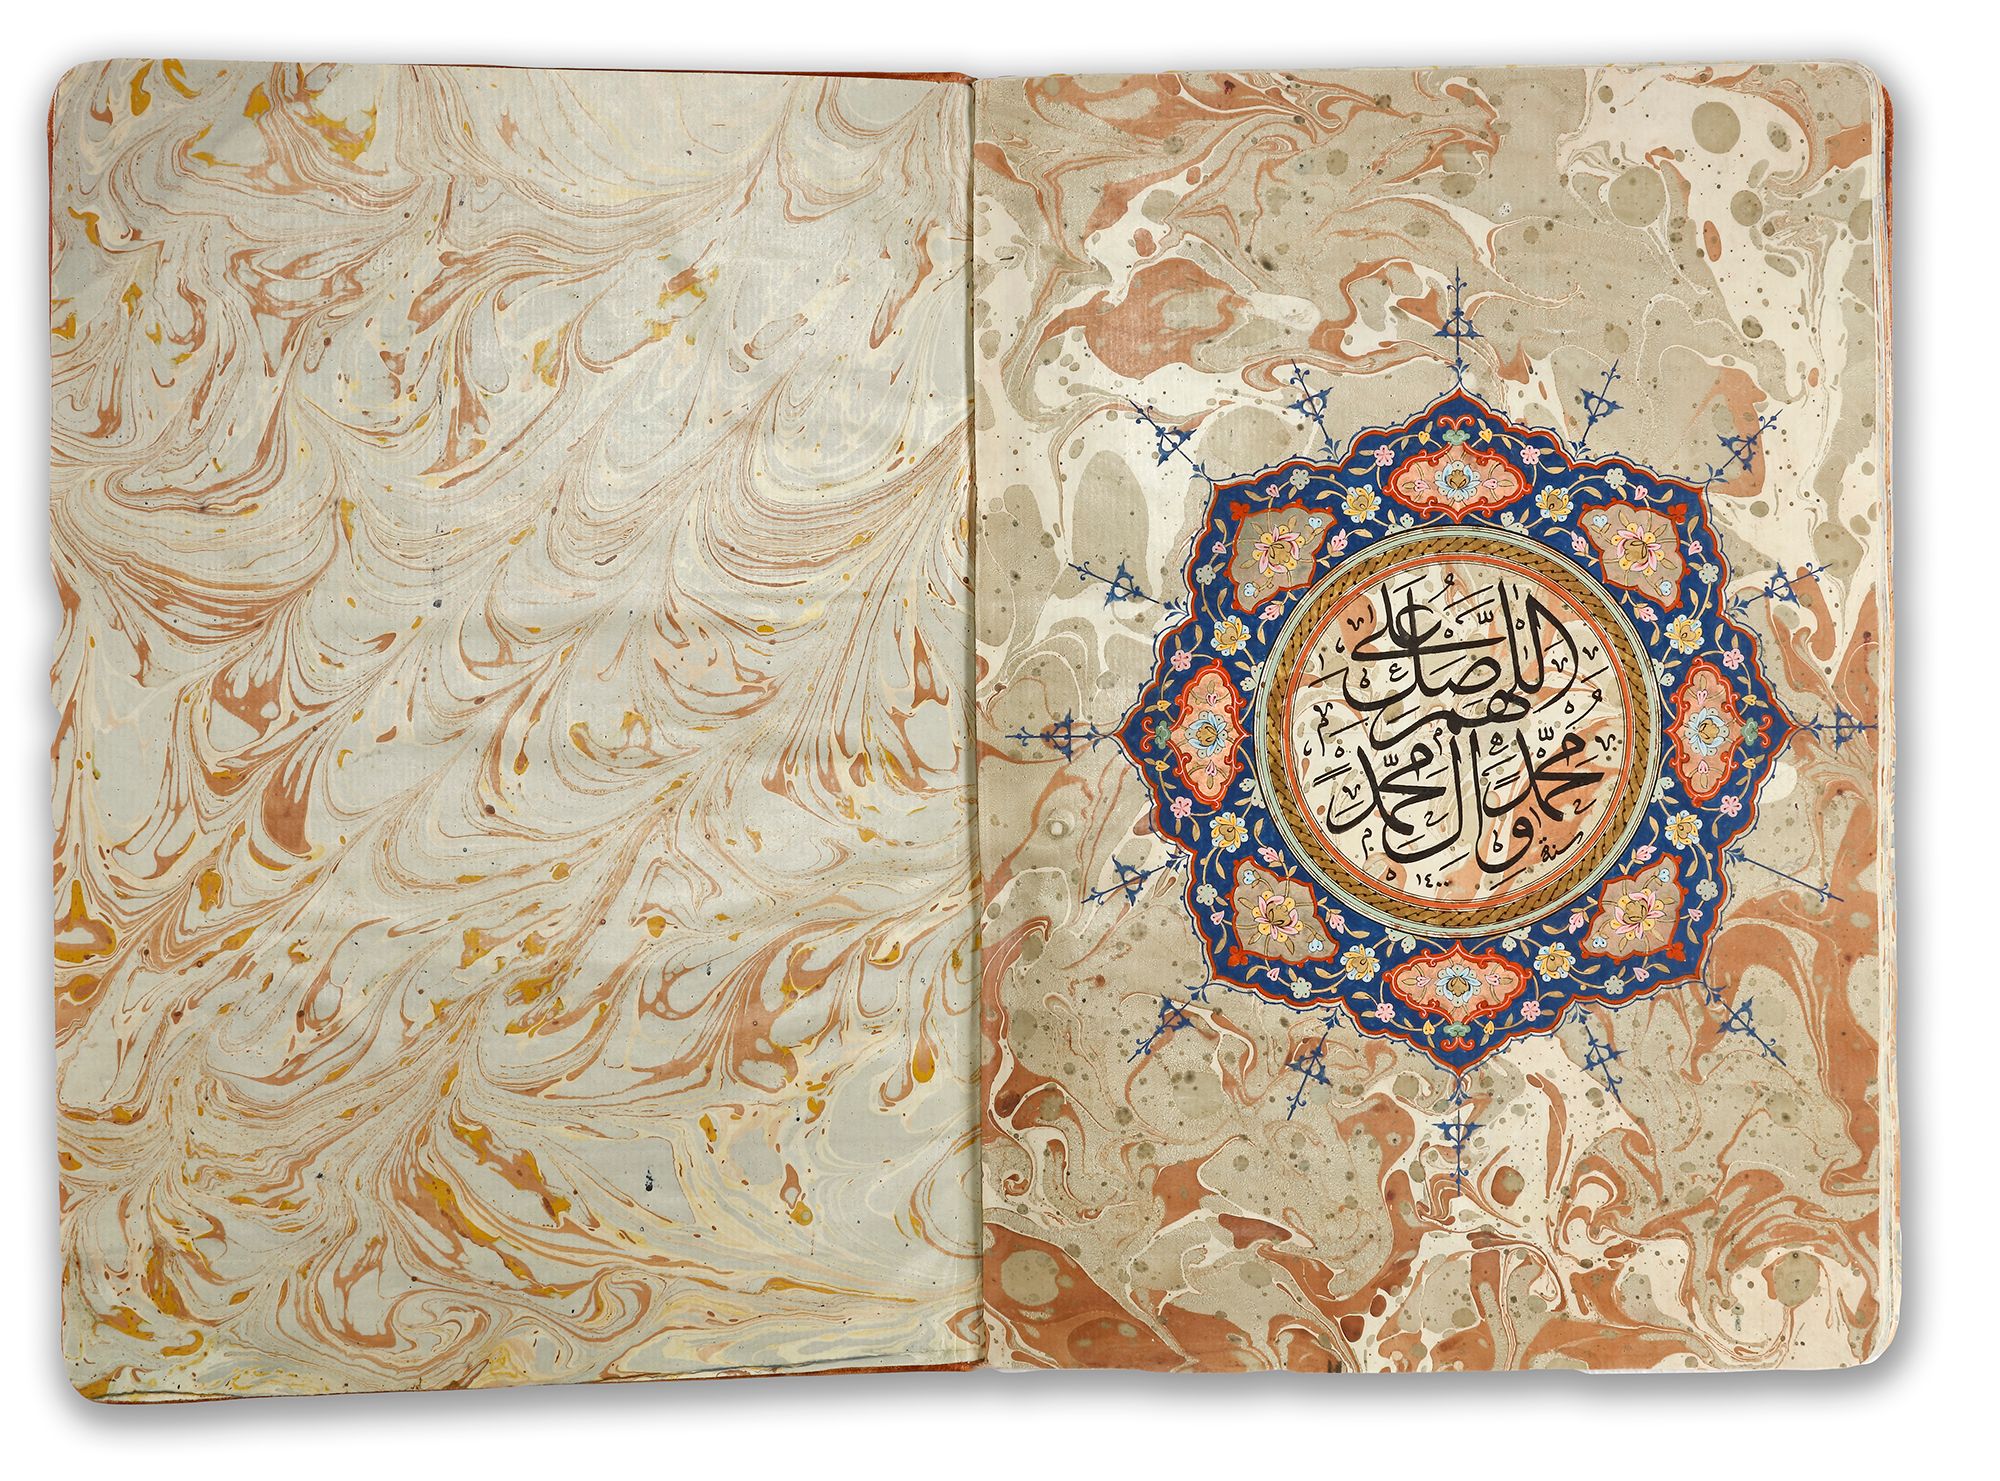 اللهم صل على
محمد وال محمد
سنة
١٤٠٠